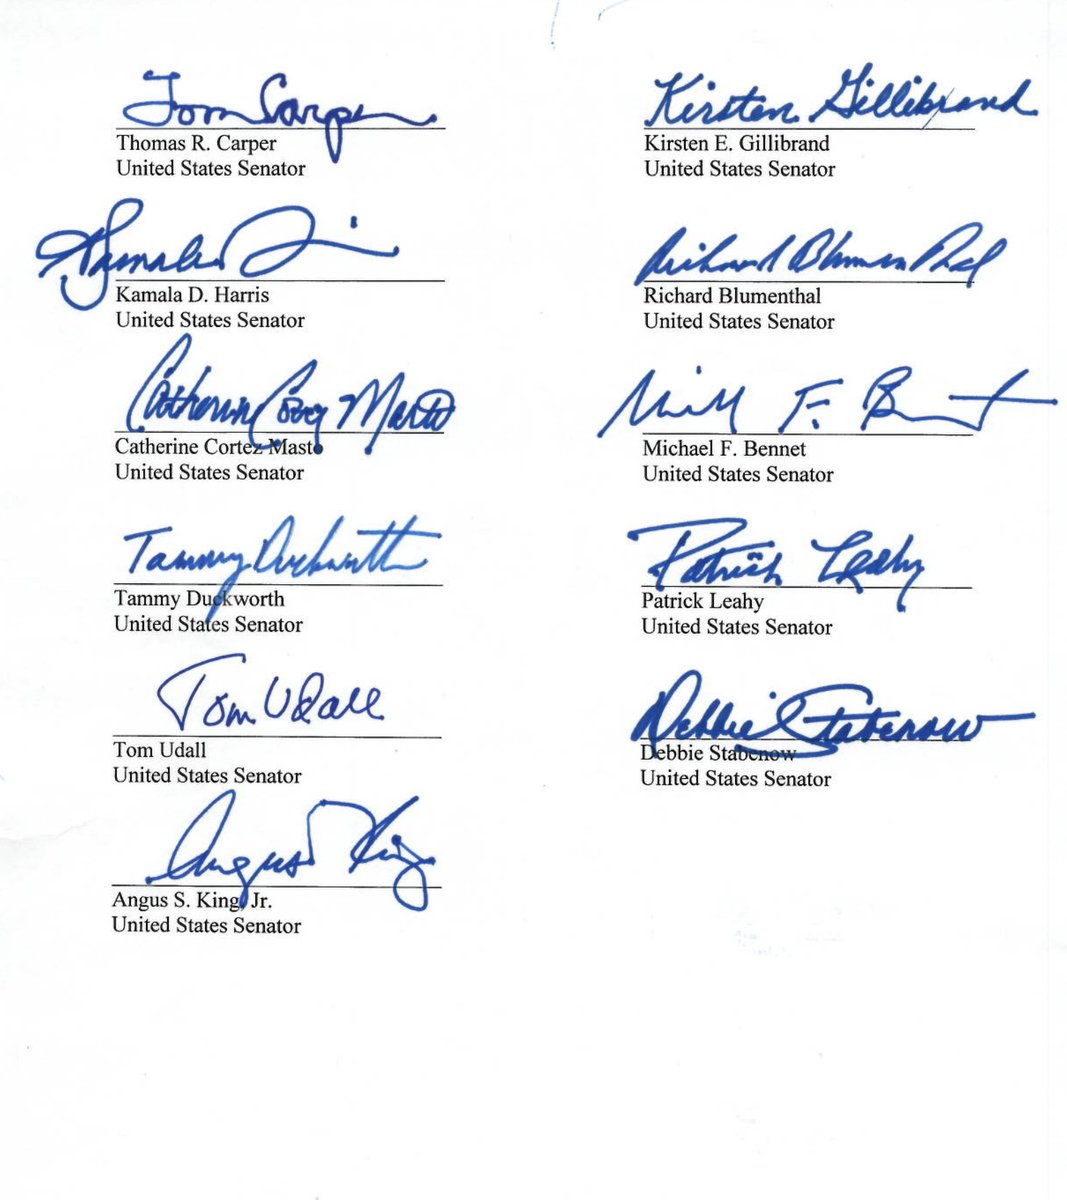 Tom Carper
Thomas R. Carper
United States Senator
Kirsten Gillibrand
Kirsten E. Gillibrand
United States Senator
Kamala Harris
Kamala D. Harris
United States Senator
Richard Blumenthal
Richard Blumenthal
United States Senator
Catherine Cortez Masto
Catherine Cortez Masto
United States Senator
Michael F. Bennet
Michael F. Bennet
United States Senator
Tammy Duckworth
Tammy Duckworth
United States Senator
Patrick Leahy
Patrick Leahy
United States Senator
Tom Udall
Tom Udall
United States Senator
Debbie Stabenow
Debbie Stabenow
United States Senator
Angus King
Angus S. King, Jr.
United States Senator